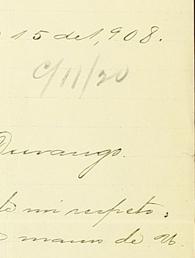 15 de 1,908.
C/11/20
Durango.
mi respeto:
mano de U.